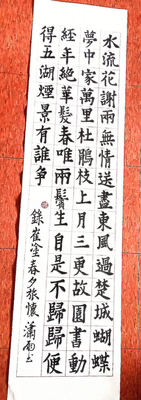 水流花謝兩無情送盡東風過楚城蝴蝶
夢中家萬里杜鵑枝上月三更故園書動
經年絶華髮春唯兩鬢生自是不歸歸便
得五湖煙景有誰争
錄崔塗春夕旅懷 瀟雨书